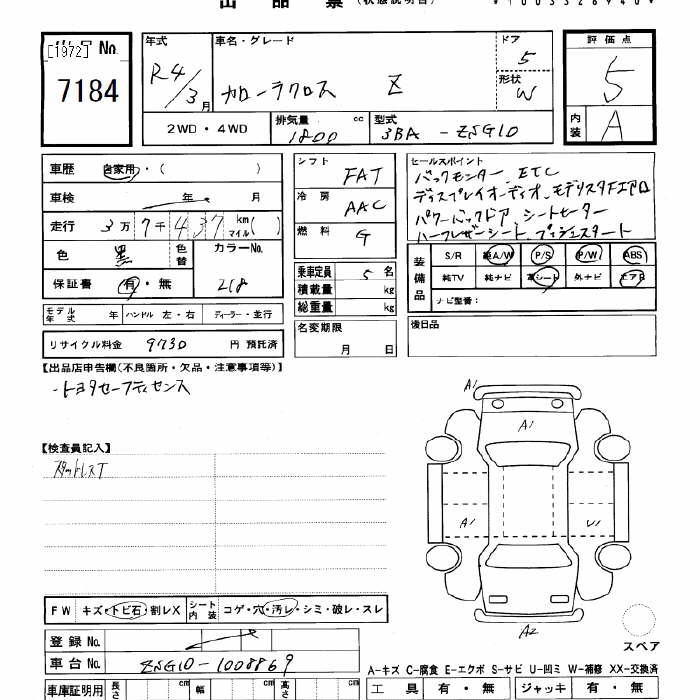 出 品 票 (状態説明書)
[1972] 出品 No.
7184
年式 R4/3月
車名・グレード カローラクロス Z
ドア 5
形状 W
評価点 5
内装 A
2WD・4WD
排気量 1800 cc
型式 3BA - ZSG10
車歴 自家用・( )
車検 年 月
走行 3万7千437 km マイル( )
色 黒 色替
カラーNo. 218
保証書 有・無
シフト FAT
冷房 AAC
燃料 G
乗車定員 5名
積載量 kg
総重量 kg
セールスポイント
バックモンター、ETC
ディスプレイオーディオ、モデリスタFエアロ
パワーバックドア、シートヒーター
ハーフレザーシート、プッシュスタート
装備品 S/R 純A/W P/S P/W ABS
純TV 純ナビ 革シート 外ナビ エアB
ナビ型番:
モデル年式 年 ハンドル 左・右 ディーラー・並行
名変期限 月 日
後日品
リサイクル料金 9730 円 預託済
【出品店申告欄(不良箇所・欠品・注意事項等)】
・トヨタセーフティセンス
【検査員記入】
スタットレスT
A1
A1
A1
U1
A2
スペア
FW キズ・トビ石・割レX シート内装 コゲ・穴・汚レ・シミ・破レ・スレ
登録 No.
車台 No. ZSG10-1008869
A-キズ C-腐食 E-エクボ S-サビ U-凹ミ W-補修 XX-交換済
車庫証明用 長さ cm 幅 cm 高さ cm
工具 有・無 ジャッキ 有・無